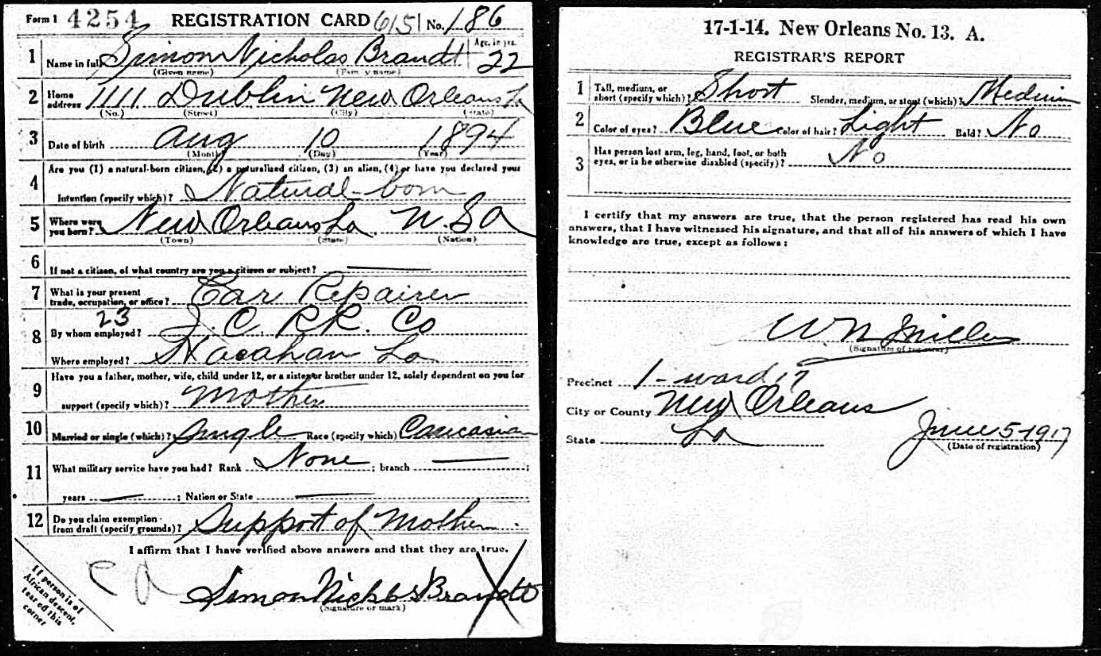 Form 1 4254 REGISTRATION CARD 615 No. 186
1 Name in full Simon Nicholas Brandt Age, in yrs. 22
(Given name) (Family name)
2 Home address 1111 Dublin New Orleans La
(No.) (Street) (City) (State)
3 Date of birth Aug 10 1894
(Month) (Day) (Year)
4 Are you (1) a natural-born citizen, (2) a naturalized citizen, (3) an alien, (4) or have you declared your
intention (specify which)? Natural-born
5 Where were you born? New Orleans La. U.S.A
(Town) (State) (Nation)
6 If not a citizen, of what country are you a citizen or subject?
7 What is your present trade, occupation, or office? Car Repairer
23
8 By whom employed? I. C. RR. Co
Where employed? Harahan La
9 Have you a father, mother, wife, child under 12, or a sister or brother under 12, solely dependent on you for
support (specify which)? Mother
10 Married or single (which)? Single Race (specify which) Caucasian
11 What military service have you had? Rank None ; branch ;
years ; Nation or State
12 Do you claim exemption from draft (specify grounds)? Support of Mother.
I affirm that I have verified above answers and that they are true.
Simon Nichls Brandt
(Signature or mark)
If person is of African descent, tear off this corner
17-1-14. New Orleans No. 13. A.
REGISTRAR'S REPORT
1 Tall, medium, or short (specify which)? Short Slender, medium, or stout (which)? Medium
2 Color of eyes? Blue Color of hair? Light Bald? No
3 Has person lost arm, leg, hand, foot, or both eyes, or is he otherwise disabled (specify)? No
I certify that my answers are true, that the person registered has read his own
answers, that I have witnessed his signature, and that all of his answers of which I have
knowledge are true, except as follows:
W N Miller
(Signature of registrar)
Precinct 1-ward 17
City or County New Orleans
State La
June 5-1917
(Date of registration)